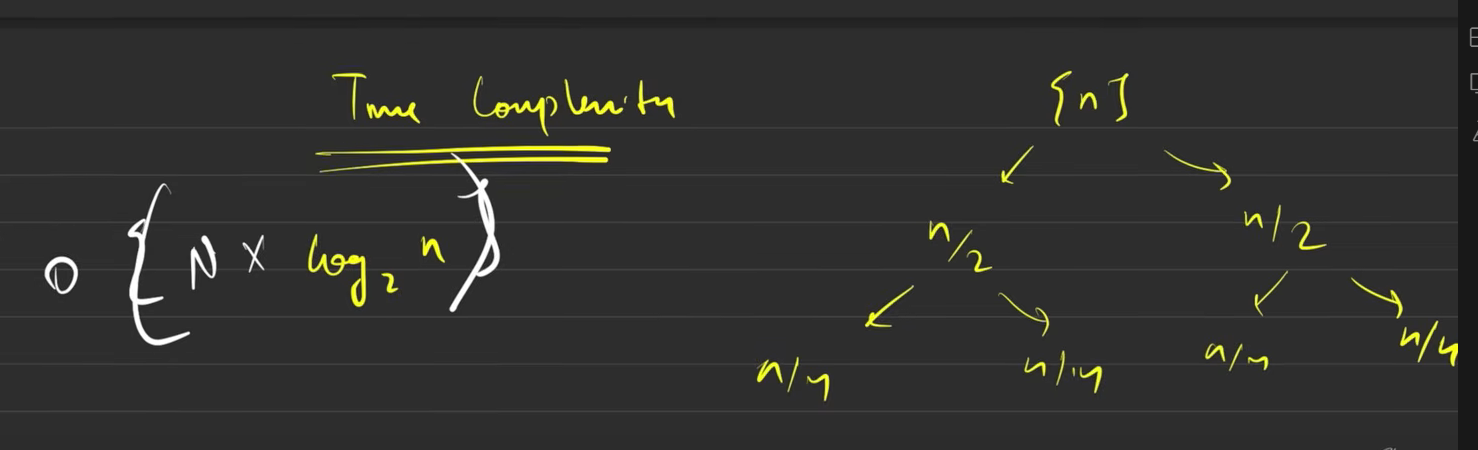 Time Complexity
{n}
O { N × log₂ n }
n/2 n/2
n/4 n/4 n/4 n/4